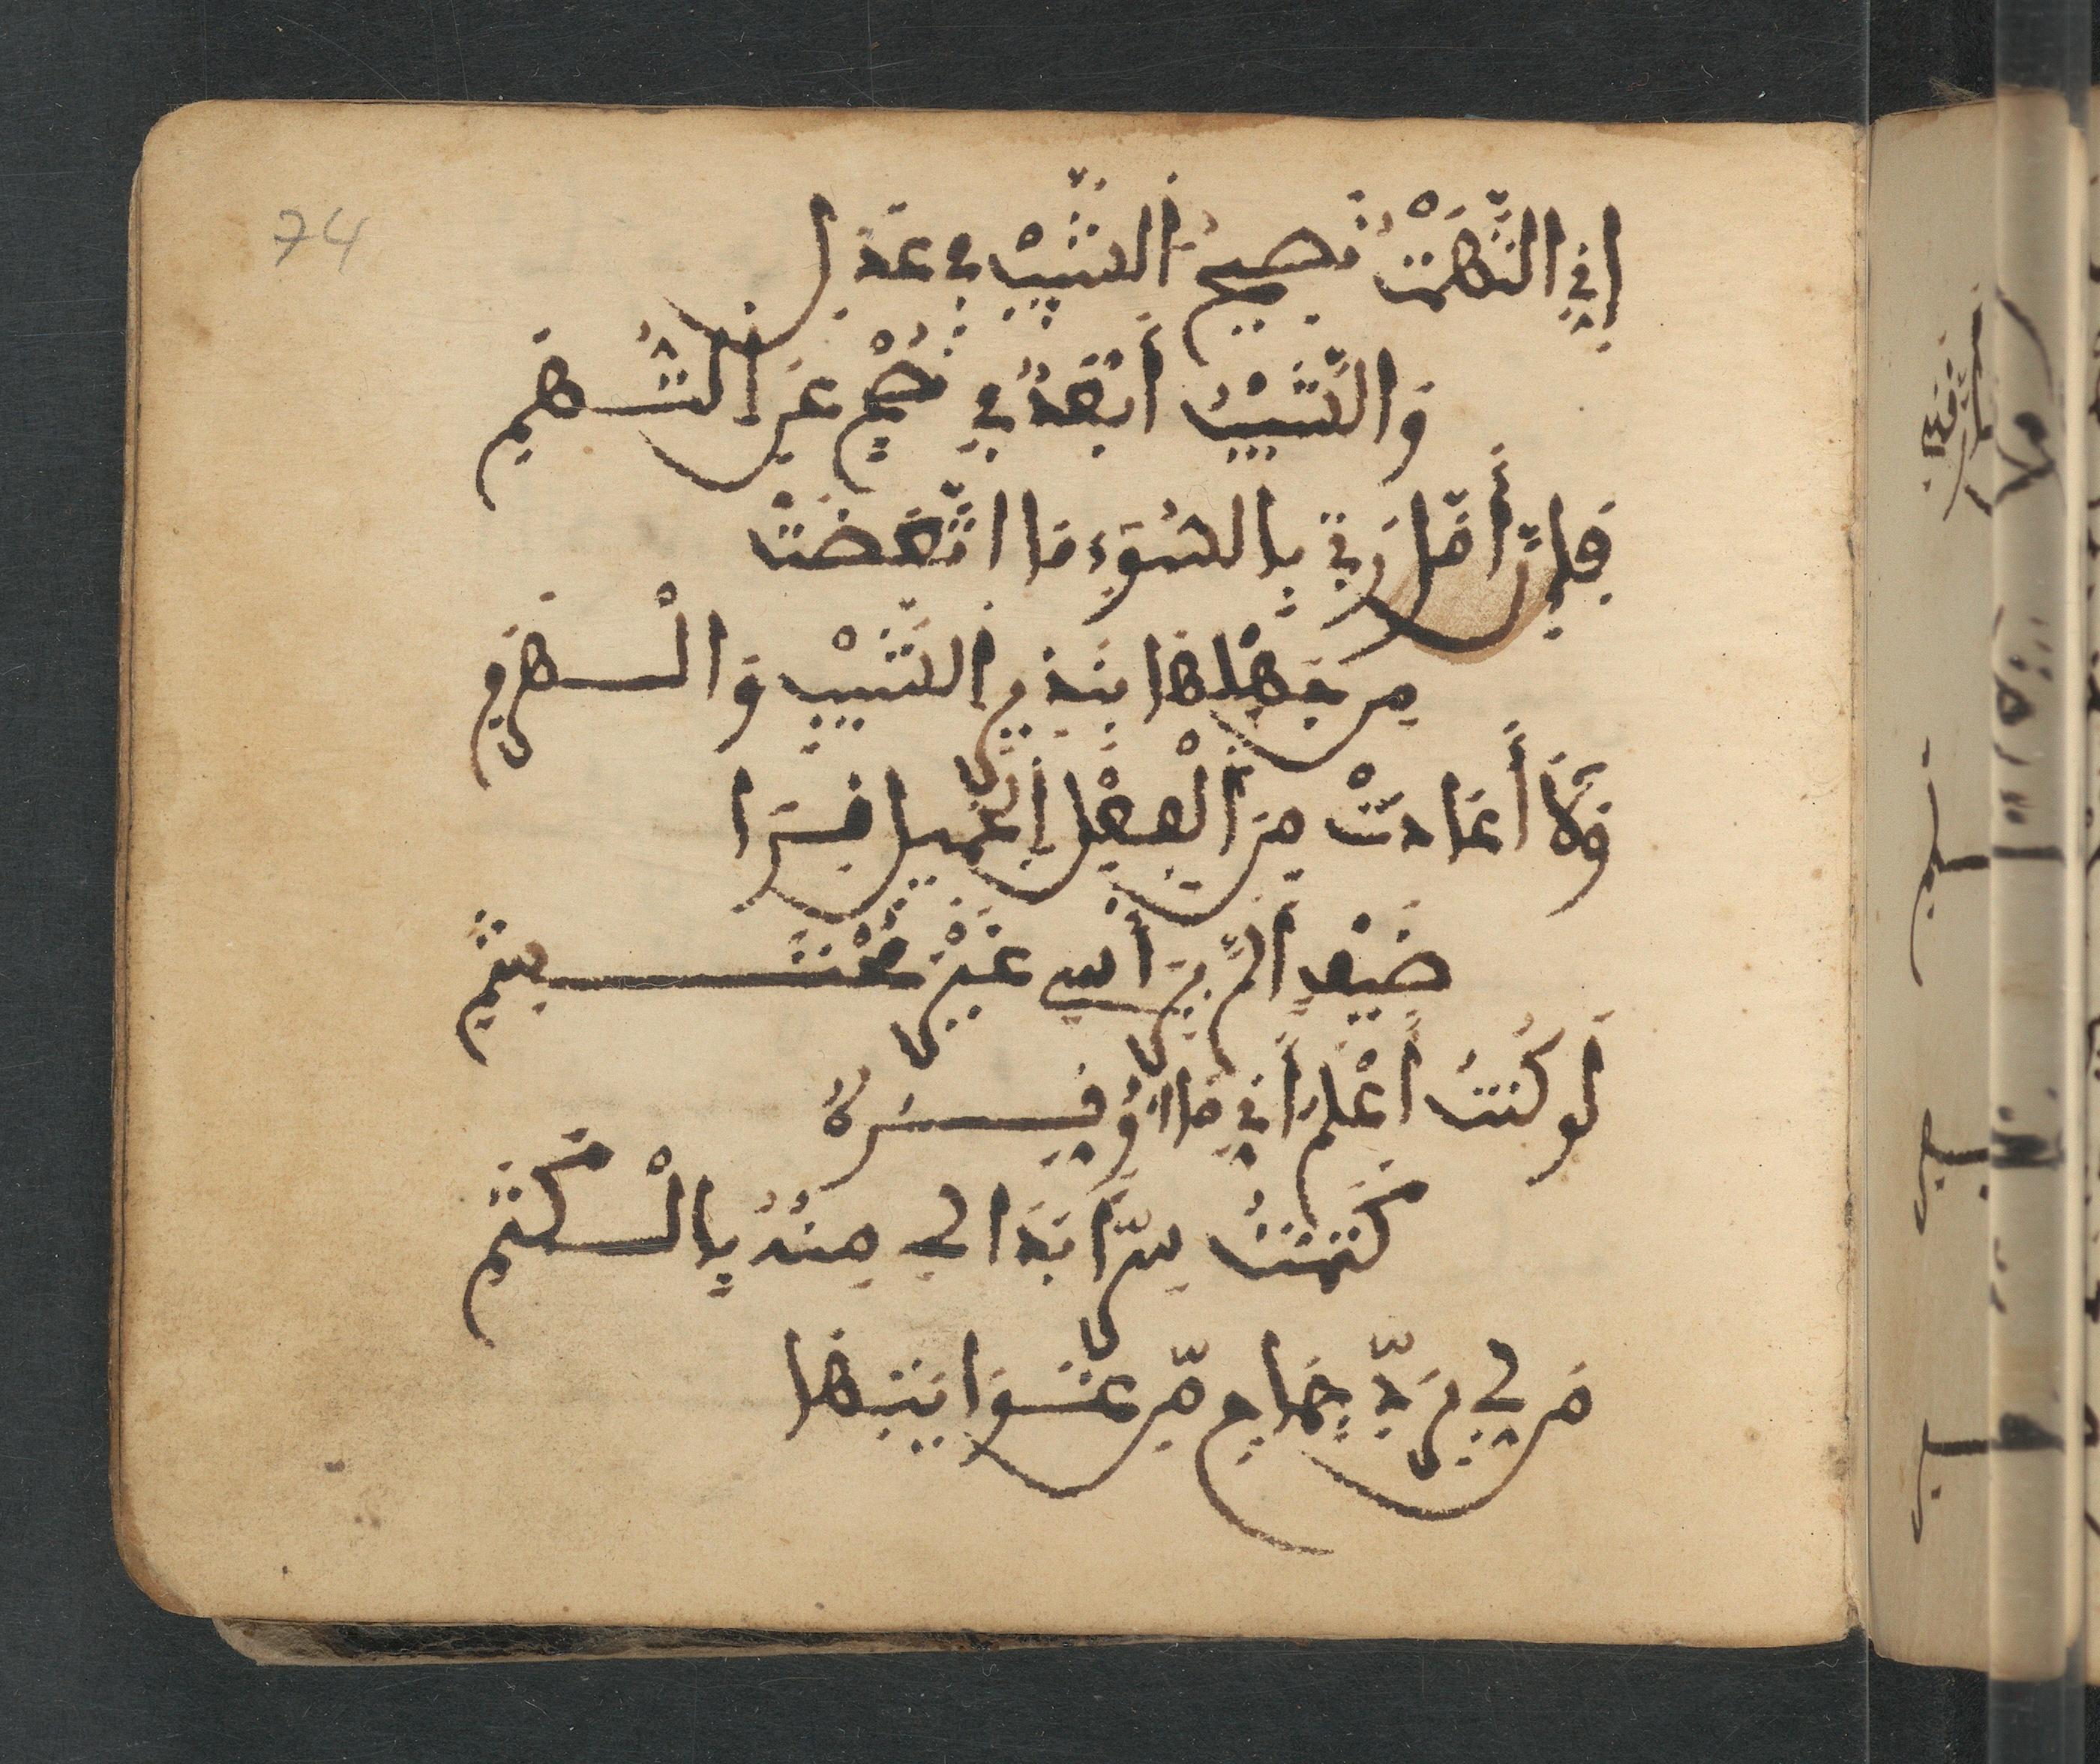 74
إِنِّي اتَّهَمْتُ نَصِيحَ الشَّيْبِ فِي عَذَلِ
وَالشَّيْبُ أَبْعَدُ فِي نُصْحٍ عَنِ التُّهَمِ
فَإِنَّ أَمَّارَتِي بِالسُّوءِ مَا اتَّعَضَتْ
مِن جَهْلِهَا بِنَذِيرِ الشَّيْبِ وَالْهَرَمِ
وَلَا أَعَادَتْ مِنَ الْفِعْلِ الْجَمِيلِ قِرَا
ضَيْفٍ أَلَمَّ بِرَأْسِي غَيْرَ مُحْتَشِمِ
لَو كُنتُ أَعْلَمُ أَنِّي مَا أُوَقِّرُهُ
كَتَمْتُ سِرًّا بَدَا لِي مِنْهُ بِالْكَتَمِ
مَن لِي بِرَدِّ جِمَاحٍ مِّنْ غَوَايَتِهَا